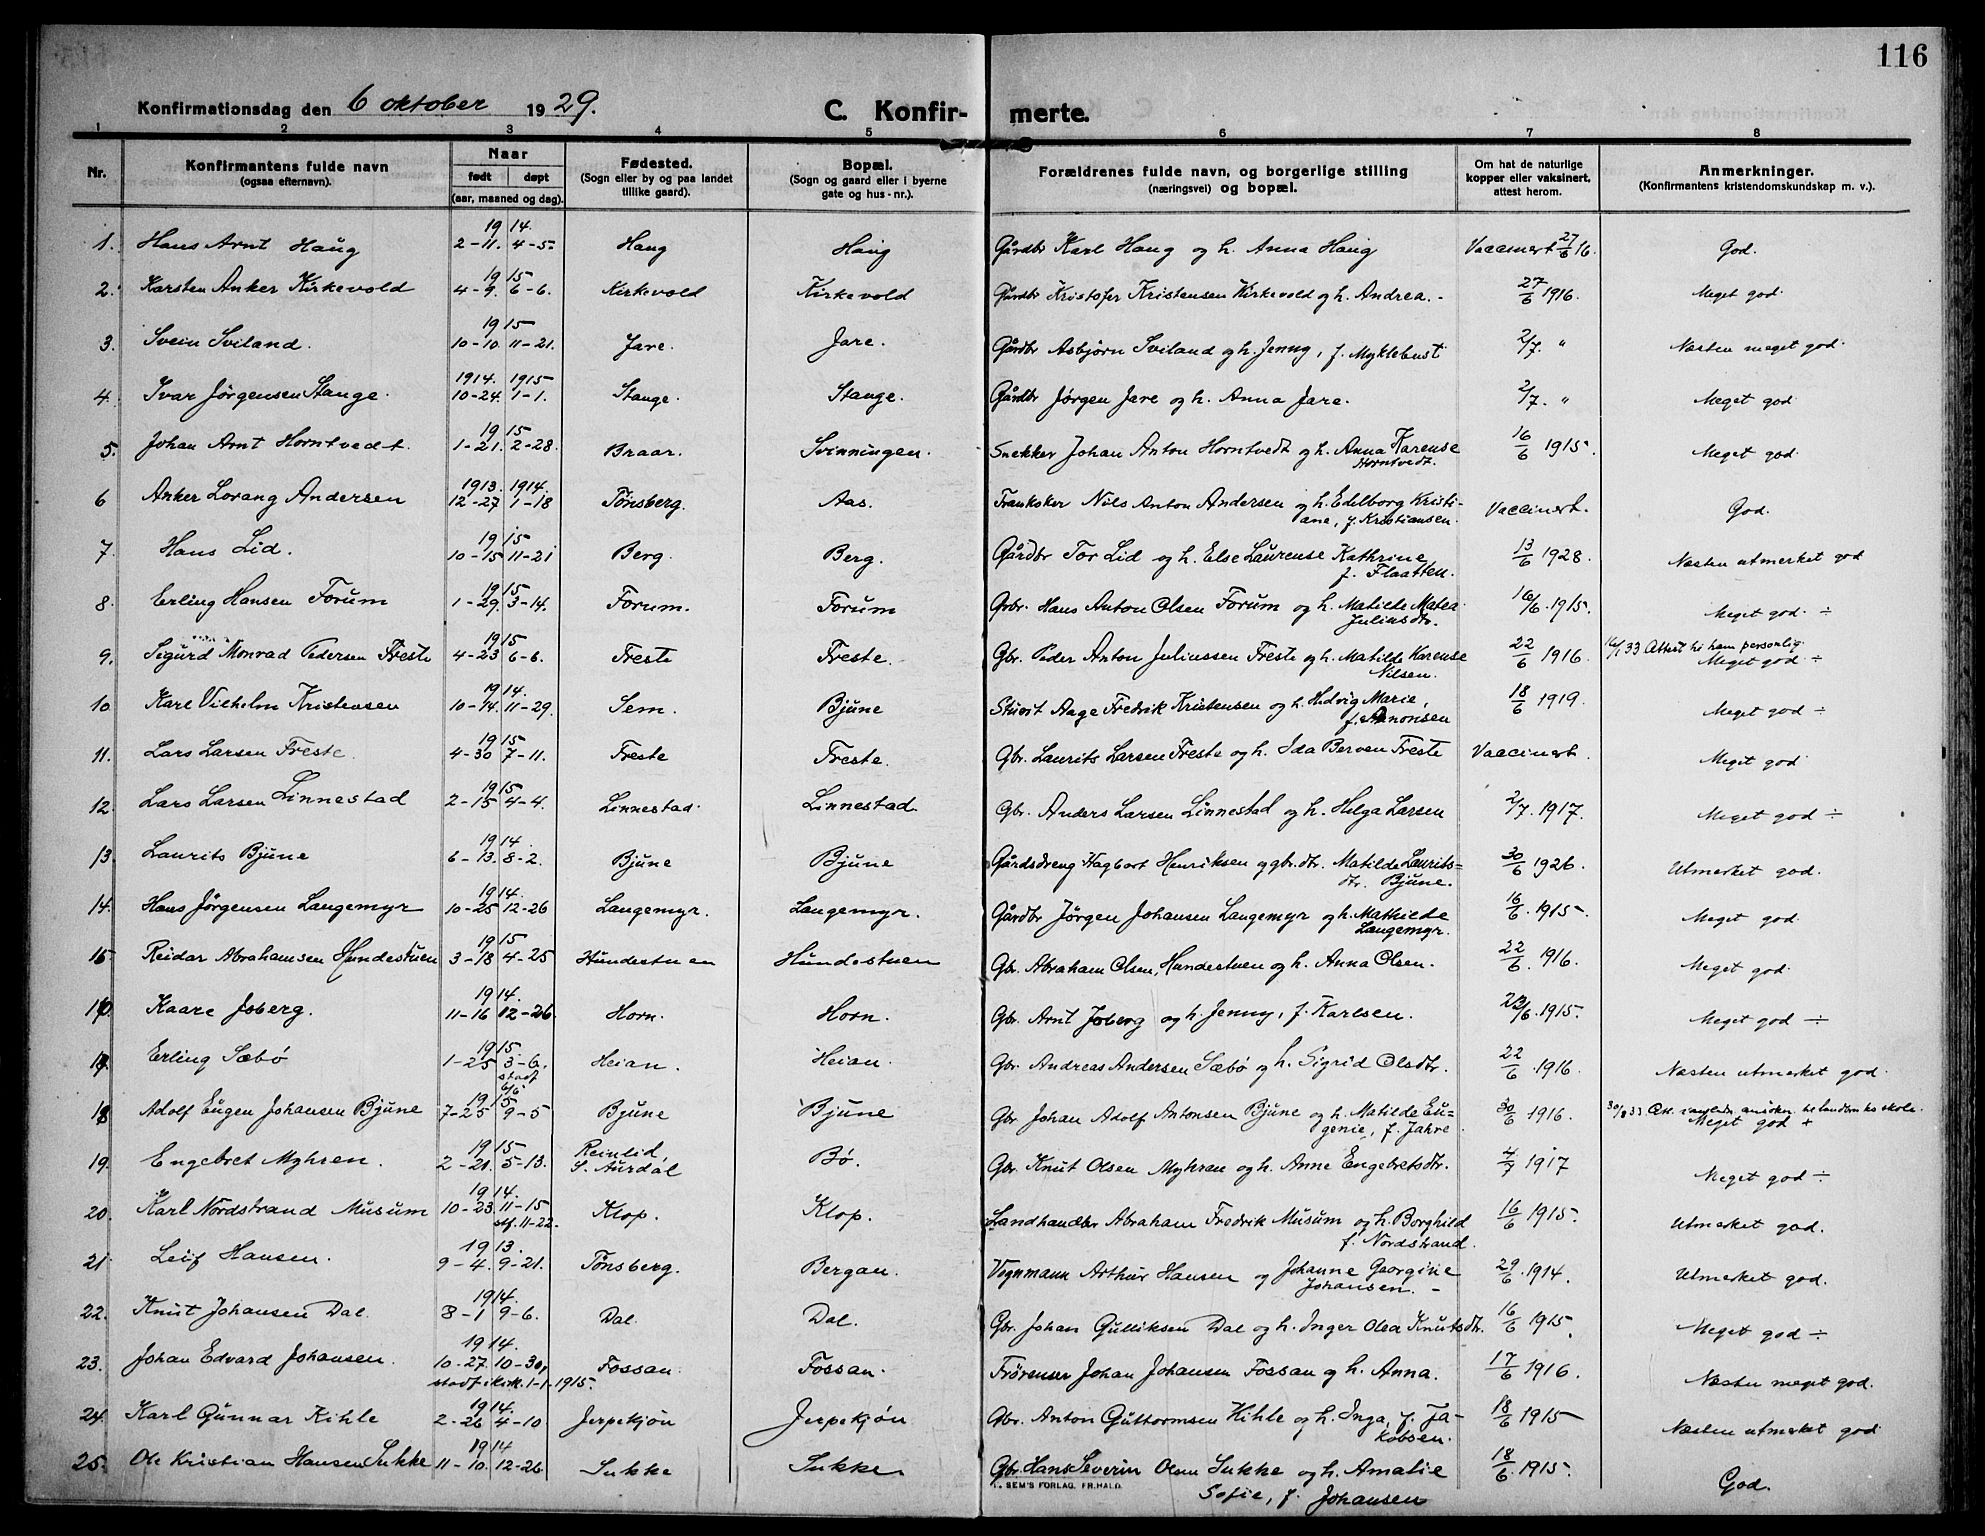 116
Konfirmationsdag den 6 oktober 1929.
C. Konfirmerte.
1 2 3 4 5 6 7 8
Nr. Konfirmantens fulde navn (ogsaa efternavn). Naar født døpt (aar, maaned og dag). Fødested. (Sogn eller by og paa landet tillike gaard). Bopæl. (Sogn og gaard eller i byerne gate og hus-nr.). Forældrenes fulde navn, og borgerlige stilling (næringsvei) og bopæl. Om hat de naturlige kopper eller vaksinert, attest herom. Anmerkninger. (Konfirmantens kristendomskundskap m. v.).
1. Hans Arnt Haug 1914. 2-11. 4-5. Haug Haug Gårdbr Karl Haug og h. Anna Haug Vaccinert 27/6 16. God.
2. Karsten Anker Kirkevold 1915 4-9. 6-6. Kirkevold Kirkevold Gårdbr Kristofer Kristensen Kirkevold og h. Andrea. - 27/6 1916. Meget god
3. Svein Sviland. 1915 10-10. 11-21. Jare. Jare. Gårdbr Asbjørn Sviland og h. Jenny, f. Myklebust 2/7. " Næsten meget god.
4. Ivar Jørgensen Stange. 1914. 1915 10-24. 1-1. Stange. Stange. Gårdbr Jørgen Jare og h. Anna Jare. 2/7. " Meget god
5. Johan Arnt Horntvedt. 1915 1-21. 2-28. Braar. Svinningen. Snekker Johan Anton Horntvedt og h. Anna Karense Horntvedt. 16/6 1915. Meget god
6 Anker Lorang Andersen 1913. 1914. 12-27 1-18 Tønsberg. Aas. Frankoker Nils Anton Andersen og h. Edelborg Kristiane, f. Kristiansen. Vaccinert. God.
7. Hans Lid. 1915 10-15 11-21 Berg. Berg. Gårdbr Tor Lid og h. Else Laurense Kathrine f. Flaatten. 13/6 1928. Næsten utmerket god
8. Erling Hansen Forum 1915 1-29. 3-14. Forum. Forum Grbr. Hans Anton Olsen Forum og h. Matilde Matea Juliusdtr. 16/6. 1915. Meget god. ÷
9. Sigurd Monrad Pedersen Freste 1915 4-23 6-6. Freste Freste. Gbr. Peder Anton Juliussen Freste og h. Matilde Karense Nilsen. 22/6 1916. 33 Attest til ham personlig. Meget god ÷
10. Kare Vilhelm Kristensen 1914. 10-14. 11-29. Sem. Bjune Aage Fredrik Kristensen og h. Hedvig Marie, f. Annonsen 18/6 1919. Meget god ÷
11. Lars Larsen Freste 1915 4-30 7-11. Freste Freste. Gbr. Laurits Larsen Freste og h. Ida Berven Freste Vaccinert. Meget god
12. Lars Larsen Linnestad 1915 2-15 4-4. Linnestad. Linnestad. Gbr. Anders Larsen Linnestad og h. Helga Larsen 2/7. 1917. Meget god ÷
13. Laurits Bjune 1914. 6-13. 8-2. Bjune Bjune Gårdsdreng Hagbart Henriksen og gbr. dtr. Matilde Lauritsdtr. Bjune. 30/6 1926. Utmerket god.
14. Hans Jørgensen Langemyr 1914. 10-25 12-26 Langemyr. Langemyr. Gårdbr Jørgen Johansen Langemyr og h. Mathilde Langemyr. 16/6. 1915. Meget god
15 Reidar Abrahamsen Hundestuen 1915 3-18 4-25 Hundestuen Hundestuen Gbr. Abraham Olsen, Hundestuen og h. Anna Olsen. 22/6. 1916. Meget god
16. Kaare Joberg. 1914. 11-16 12-26. Horn. Horn. Gbr. Arnt Joberg og h. Jenny, f. Karlsen. 23/6. 1915. Meget god ÷
17. Erling Sæbø 1915. 1-25 3-6. stadf 6/6 Heian. Heian. Gbr. Andreas Andersen Sæbø og h. Sigrid Olsdtr. 22/6 1916. Næsten utmerket god
18. Adolf Eugen Johansen Bjune 1915 7-25 9-5 Bjune Bjune Gbr Johan Adolf Antonsen Bjune og h. Matilde Eugenie, f. Jahre 30/6 1916. Meget god +
19. Engebret Myhren. 1915 2-21. 5-13. Reinlid, S. Aurdal Bø. Gbr. Knut Olsen Myhren og h. Anne Engebretsdtr. 4/7 1917 Meget god ÷
20. Karl Nordstrand Musum 1914. 10-23. 11-15 stf. 11-22. Klop. Klop. Landhandler Abraham Fredrik Musum og h. Borghild f. Nordstrand. 16/6 1915. Utmerket god.
21 Leif Hansen. 1913. 9-4. 9-21. Tønsberg. Bergan. Vognmann Arthur Hansen og Johanne Georgine Johansen. - 29/6. 1914. Utmerket god.
22. Knut Johansen Dal. 1914. 8-1 9-6. Dal. Dal. Gbr. Johan Gulliksen Dal og h. Inger Olea Knutsdtr. 16/6 1915. Meget god ÷
23. Johan Edvard Johansen. 1914. 10-27. 10-30, stadf i kirk. 1-1-1915. Fossan. Fossan. Johan Johansen Fossan og h. Anna. 17/6 1916. Næsten meget god.
24. Karl Gunnar Kihle 1914. 2-26 4-10. Jerpekjøn Jerpekjøn Gbr. Anton Guttormsen Kihle og h. Inga, f. Jakobsen. 18/6 1915 Næsten utmerket god
25. Ole Kristian Hansen Sukke 1914 11-10. 12-26. Sukke Sukke Gbr. Hans Severin Olsen Sukke og h. Amalie Sofie, f. Johansen 18/6. 1915. God.
SEM'S FORLAG. FR.HALD.